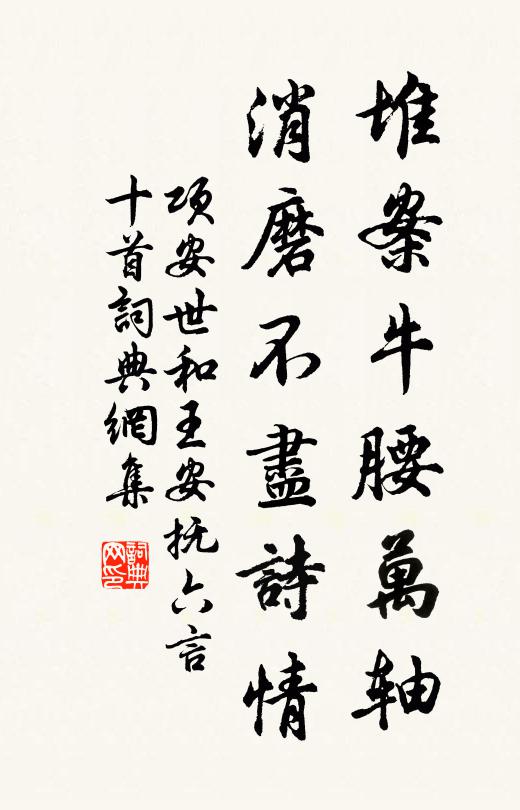 堆案牛腰萬軸
消磨不盡詩情
項安世和王安抚六言
十首詞典網集
詞典
网印